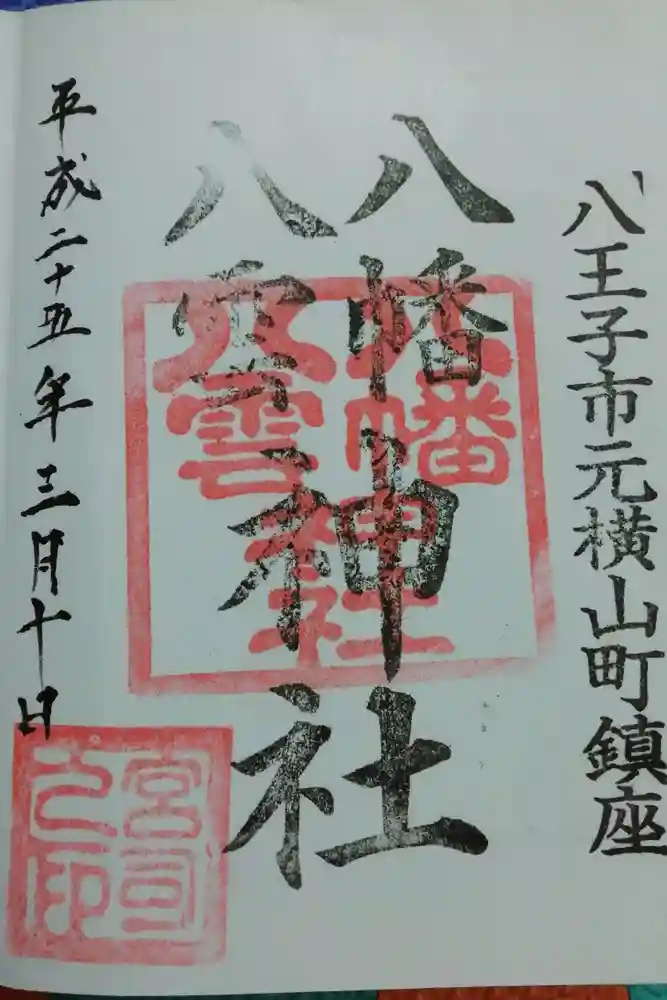 八王子市元横山町鎮座
八幡
八雲
神社
八幡
八雲
神社
平成二十五年三月十日
宮司
之印